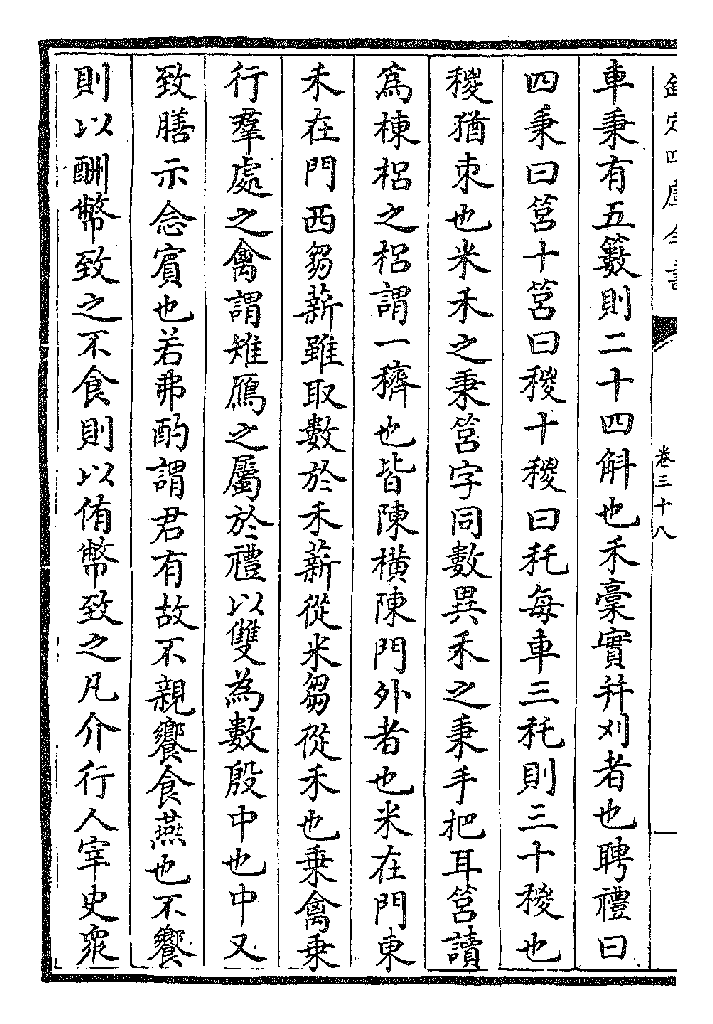 欽定四庫全書
卷三十八
車秉有五籔則二十四斛也禾稾實幷刈者也聘禮曰
四秉曰筥十筥曰稯十稯曰秅每車三秅則三十稯也
稯猶束也米禾之秉筥字同數異禾之秉手把耳筥讀
為棟梠之梠謂一穧也皆陳橫陳門外者也米在門東
禾在門西芻薪雖取數於禾薪從米芻從禾也乗禽乗
行羣處之禽謂雉鴈之屬於禮以雙為數殷中也中又
致膳示念賓也若弗酌謂君有故不親饗食燕也不饗
則以酬幣致之不食則以侑幣致之凡介行人宰史衆